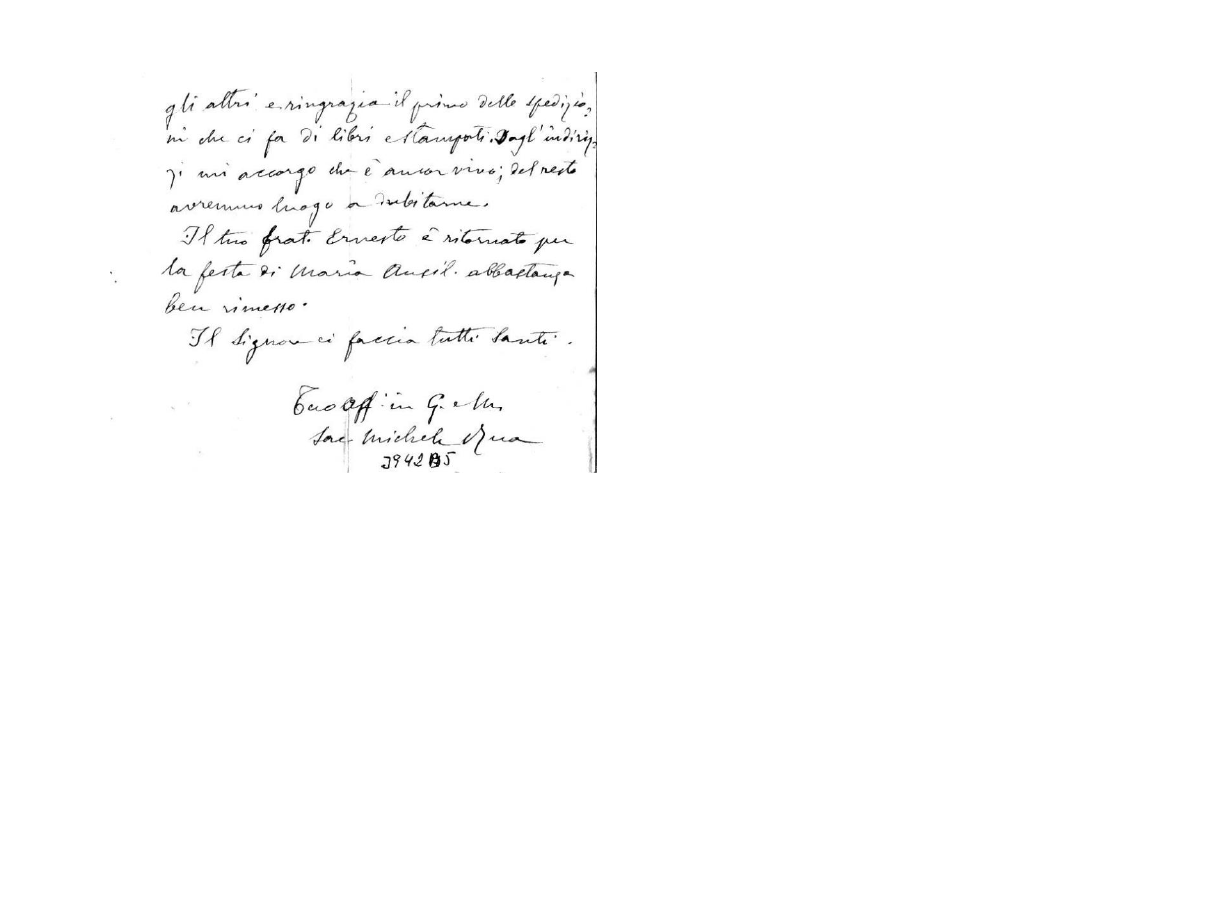 gli altri e ringrazia il primo delle spedizio,
ni che ci fa di libri e stampati. Dagl'indiriz-
zi mi accorgo che è ancor vivo; del resto
avremmo luogo a dubitarne.
Il tuo frat. Ernesto è ritornato per
la festa di Maria Ausil. abbastanza
ben rimesso.
Il Signore ci faccia tutti santi.
Tuo aff. in G. e M.
Sac. Michele Rua
3942B5